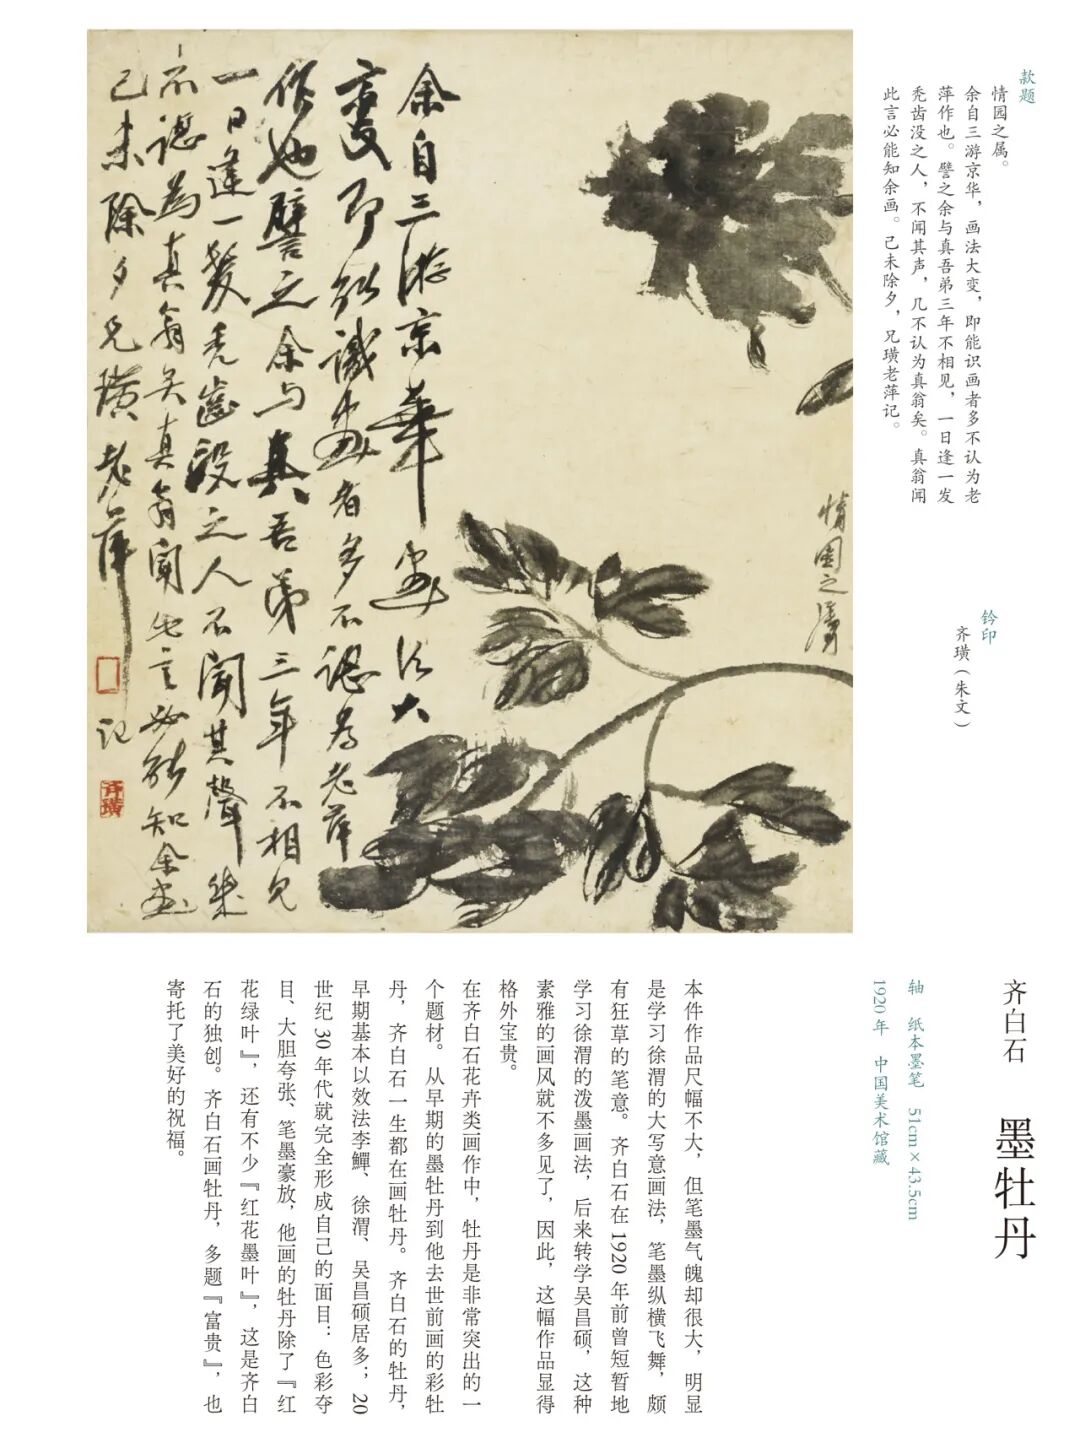 款题
情园之属。
余自三游京华，画法大变，即能识画者多不认为老
萍作也。譬之余与真吾弟三年不相见，一日逢一发
秃齿没之人，不闻其声，几不认为真翁矣。真翁闻
此言必能知余画。己未除夕，兄璜老萍记。
钤印
齐璜（朱文）
情園之屬
余自三游京華畫法大
變即能識畫者多不認為老萍
作也譬之余与真吾弟三年不相見
一日逢一髮禿齒沒之人不聞其聲幾
不認為真翁矣真翁聞此言必能知余畫
己未除夕兄璜老萍記
齊璜
齐白石 墨牡丹
轴 纸本墨笔 51cm×43.5cm
1920年 中国美术馆藏
本件作品尺幅不大，但笔墨气魄却很大，明显
是学习徐渭的大写意画法，笔墨纵横飞舞，颇
有狂草的笔意。齐白石在1920年前曾短暂地
学习徐渭的泼墨画法，后来转学吴昌硕，这种
素雅的画风就不多见了，因此，这幅作品显得
格外宝贵。
在齐白石花卉类画作中，牡丹是非常突出的一
个题材。从早期的墨牡丹到他去世前画的彩牡
丹，齐白石一生都在画牡丹。齐白石的牡丹，
早期基本以效法李鱓、徐渭、吴昌硕居多；20
世纪30年代就完全形成自己的面目：色彩夺
目、大胆夸张、笔墨豪放，他画的牡丹除了『红
花绿叶』，还有不少『红花墨叶』，这是齐白
石的独创。齐白石画牡丹，多题『富贵』，也
寄托了美好的祝福。